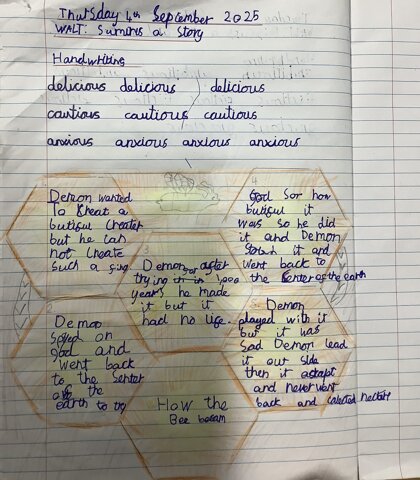 Thursday 4th September 2025
WALT: Sumires a Story
Handwriting
delicious delicious delicious
cautious cautious cautious
anxious anxious anxious anxious
Demon wanted
To creat a
butiful
but he can
not create
such a
2
Demon
on
god and
went back
to the senter
of the
earth to try
3
Demon after
trying in 1,000
years he made
it but it
had no life.
4
God sor how
butiful it
was so he did
it and Demon
it and
went back to
the senter of the earth
5 Demon
played with it
but it was
Sad Demon lead
it out side
then it
and never went
back and calected necture
How the
Bee becam